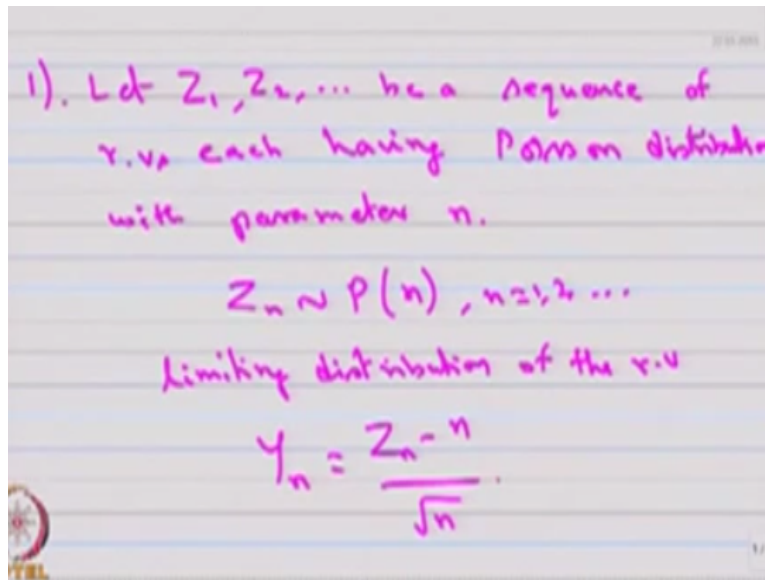 1). Let Z₁, Z₂, ... be a sequence of
r.vs each having Poisson distribution
with parameter n.
Zₙ ~ P(n), n=1,2, ...
Limiting distribution of the r.v
Yₙ = (Zₙ - n) / √n.